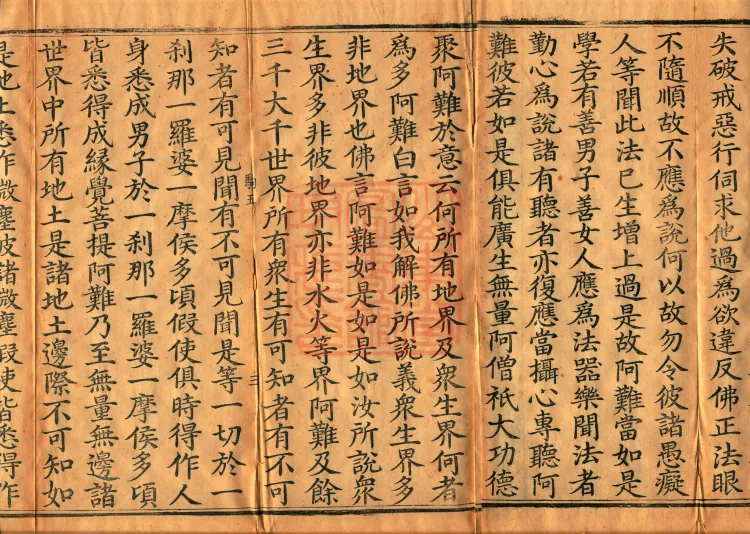 失破戒惡行伺求他過為欲違反佛正法眼
不隨順故不應為說何以故勿令彼諸愚癡
人等聞此法已生增上過是故阿難當如是
學若有善男子善女人應為法器樂聞法者
勤心為說諸有聽者亦復應當攝心專聽阿
難彼若如是俱能廣生無量阿僧祇大功德
聚阿難於意云何所有地界及衆生界何者
為多阿難白言如我解佛所說義衆生界多
非地界也佛言阿難如是如是如汝所說衆
生界多非彼地界亦非水火等界阿難及餘
三千大千世界所有衆生有可知者有不可
知者有可見聞有不可見聞是等一切於一
駒五
三
刹那一羅婆一摩侯多頃假使俱時得作人
身悉成男子於一刹那一羅婆一摩侯多頃
皆悉得成緣覺菩提阿難乃至無量無邊諸
世界中所有地土是諸地土邊際不可知如
是地土悉作微塵彼諸微塵假使皆悉得作